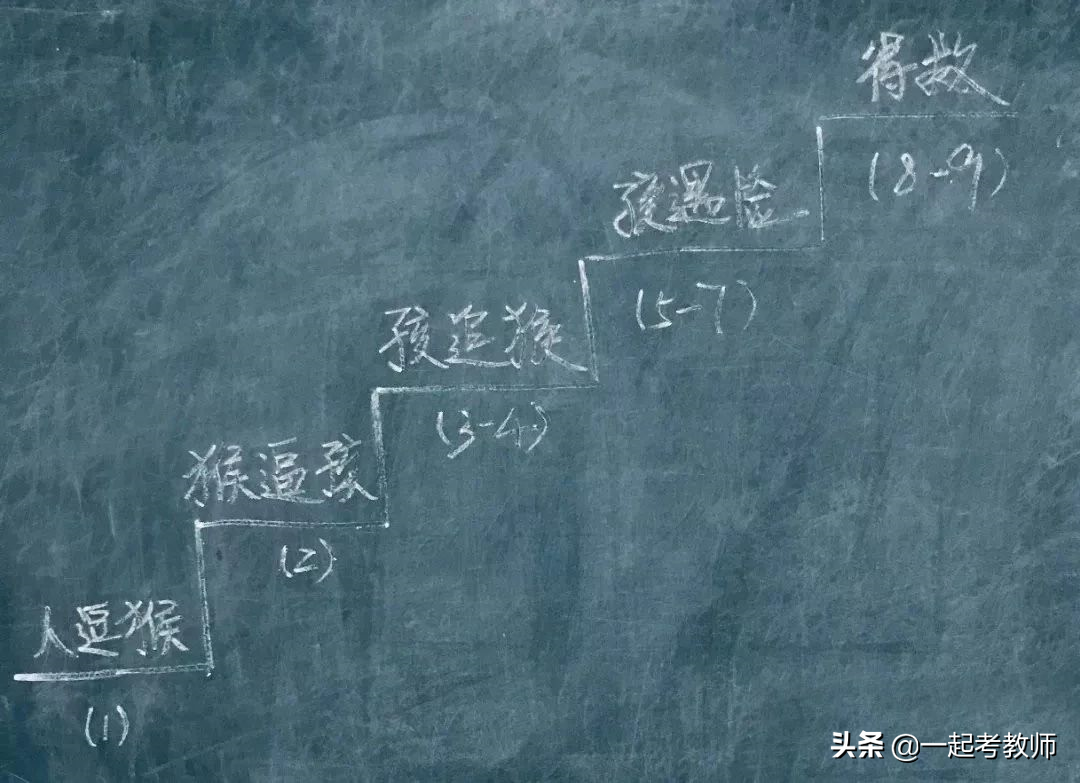 得救
(8-9)
孩遇险
(5-7)
孩追猴
(3-4)
猴逼孩
(2)
人逗猴
(1)
头条 @一起考教师